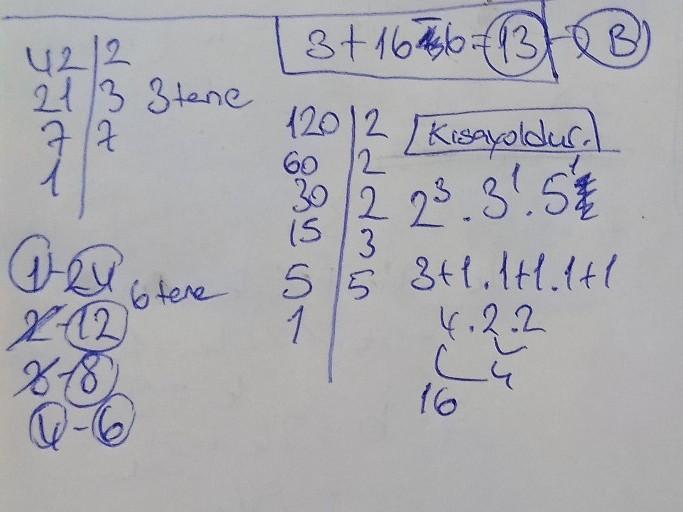 3+16-6=13 - B
42 2
21 3 3tene
7 7
1
1-24
2-12 6tene
3-8
4-6
120 2
60 2
30 2
15 3
5 5
1
Kısayoldur.
2³.3¹.5¹
3+1.1+1.1+1
4.2.2
4
16